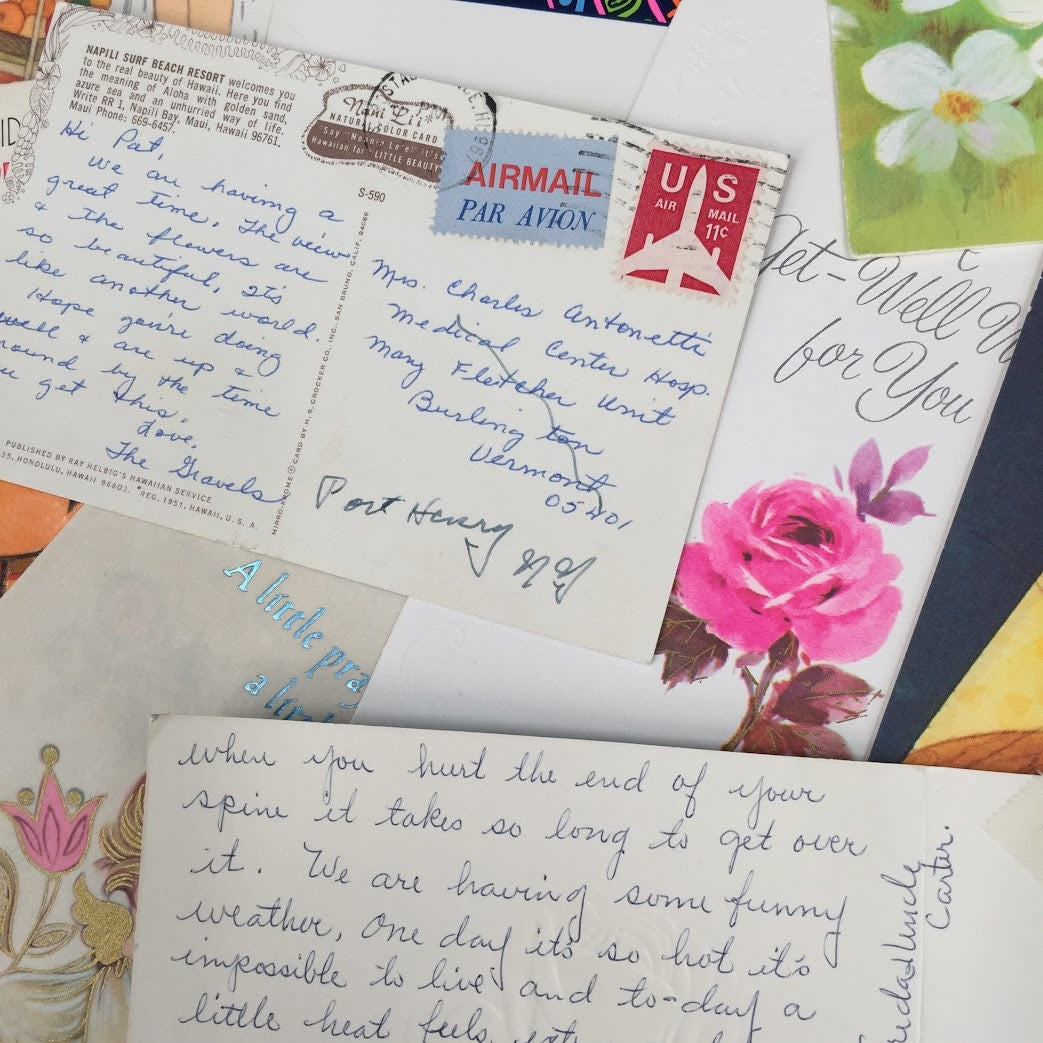 NAPILI SURF BEACH RESORT welcomes you
to the real beauty of Hawaii. Here you find
the meaning of Aloha with golden sand,
azure sea and an unhurried way of life.
Write RR 1, Napili Bay, Maui, Hawaii 96761.
Maui Phone: 669-6457.
Hi Pat,
We are having a
great time. The view
& the flowers are
so beautiful, it's
like another world.
Hope you're doing
well & are up &
round by the time
get this.
Love,
The Gravels
PUBLISHED BY RAY HELBIG'S HAWAIIAN SERVICE
35, HONOLULU, HAWAII 96803. REG. 1951, HAWAII, U. S. A.
Nani Li'i
NATURAL COLOR CARD
Say "Nah-nee Lee-ee" it's
Hawaiian for "LITTLE BEAUTY"
S-590
MIRRO-KROME ® CARD BY H. S. CROCKER CO., INC., SAN BRUNO, CALIF. 94066
AIRMAIL
PAR AVION
US
AIR MAIL
11¢
Mrs. Charles Antonetti
Medical Center Hosp.
Mary Fletcher Unit
Burlington
Vermont
05401
Port Henry
N.Y.
Get-Well
for You
A little
a
where you hurt the end of your
spine it takes so long to get over
it. We are having some funny
weather, One day it's so hot it's
impossible to live and to-day a
little heat feels
Uncle
Carter.